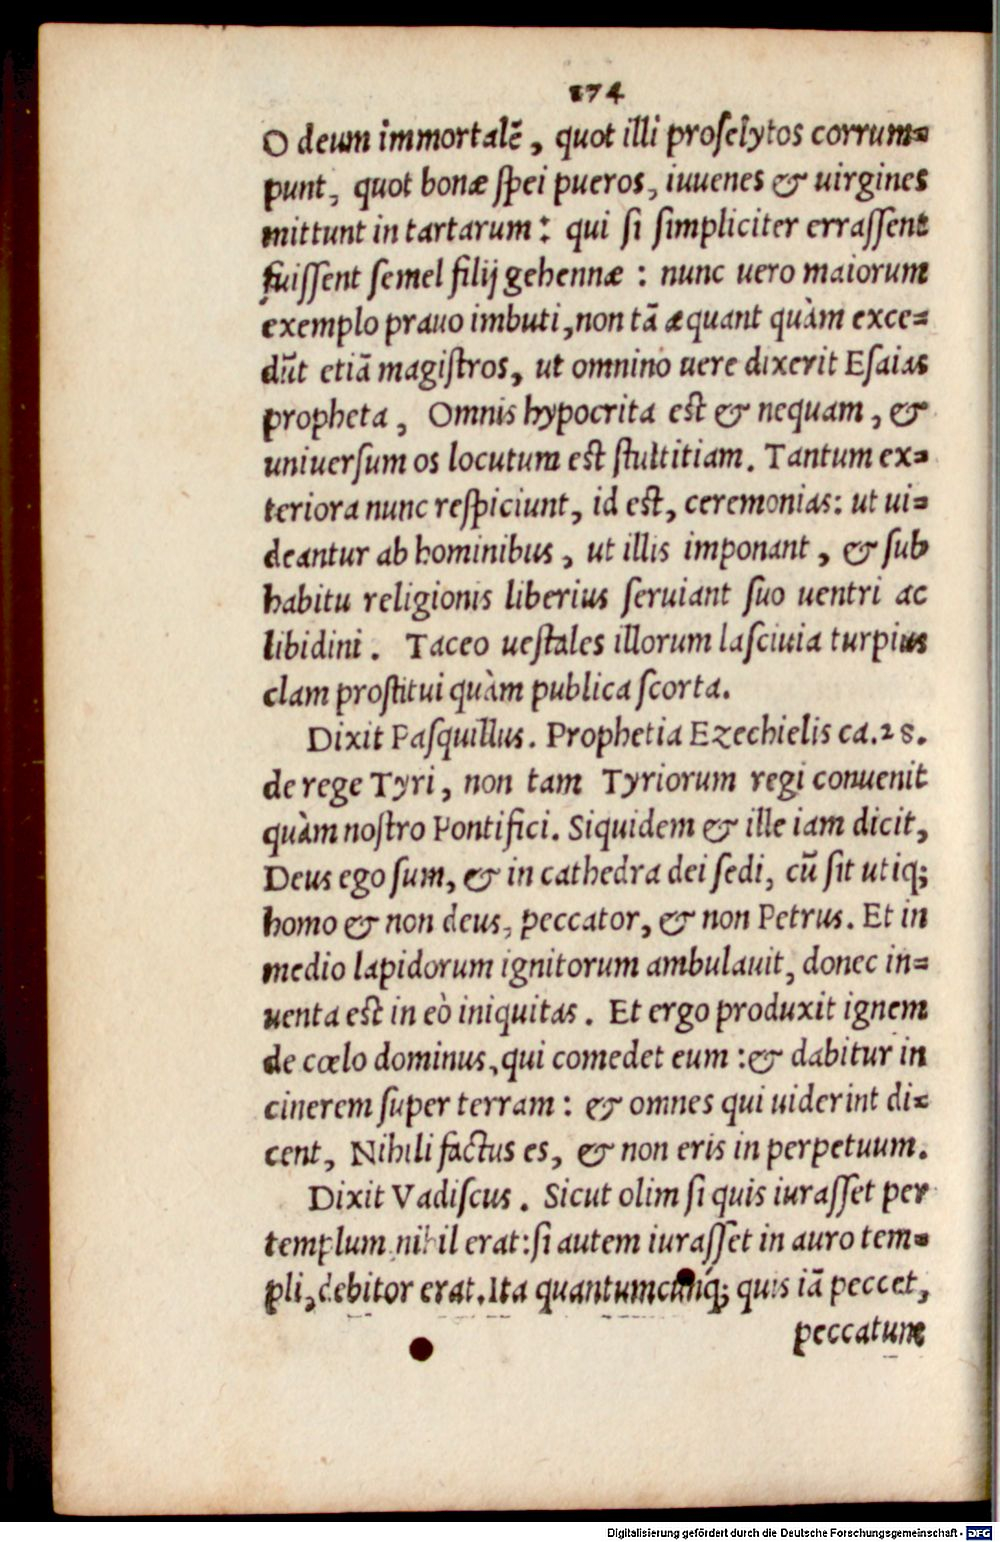 174
O deum immortalē, quot illi proſelytos corrum=
punt, quot bonæ ſpei pueros, iuuenes & uirgines
mittunt in tartarum: qui ſi ſimpliciter erraſſent
fuiſſent ſemel filij gehennæ: nunc uero maiorum
exemplo prauo imbuti, non tā æquant quàm exce=
dūt etiā magiſtros, ut omnino uere dixerit Eſaias
propheta, Omnis hypocrita eſt & nequam, &
uniuerſum os locutum eſt ſtultitiam. Tantum ex=
teriora nunc reſpiciunt, id eſt, ceremonias: ut ui=
deantur ab hominibus, ut illis imponant, & ſub
habitu religionis liberius ſeruiant ſuo uentri ac
libidini. Taceo ueſtales illorum laſciuia turpius
clam proſtitui quàm publica ſcorta.
Dixit Paſquillus. Prophetia Ezechielis ca.28.
de rege Tyri, non tam Tyriorum regi conuenit
quàm noſtro Pontifici. Siquidem & ille iam dicit,
Deus ego ſum, & in cathedra dei ſedi, cū ſit utiq;
homo & non deus, peccator, & non Petrus. Et in
medio lapidorum ignitorum ambulauit, donec in=
uenta eſt in eò iniquitas. Et ergo produxit ignem
de cœlo dominus, qui comedet eum: & dabitur in
cinerem ſuper terram: & omnes qui uiderint di=
cent, Nihili factus es, & non eris in perpetuum.
Dixit Vadiſcus. Sicut olim ſi quis iuraſſet per
templum nihil erat: ſi autem iuraſſet in auro tem=
pli, debitor erat. Ita quantumcunq́; quis iā peccet,
peccatum
Digitalisierung gefördert durch die Deutsche Forschungsgemeinschaft - DFG